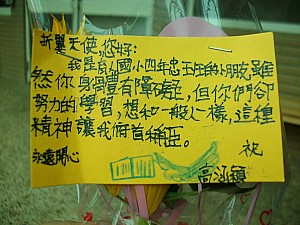 折翼天使,您好:
我是育人國小四年忠班的小朋友,雖
然你身體有障礙,但你們卻
努力的學習,想和一般人一樣,這種
精神讓我們首稱。
祝
永遠開心
高